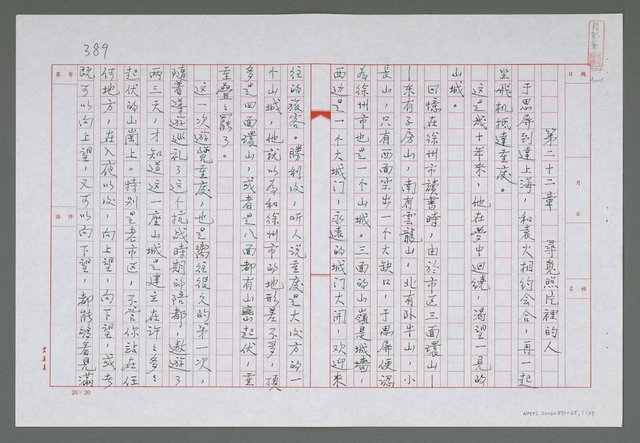 389
第二十二章　尋覓照片裡的人
于思屏到達上海，和袁火相約會合，再一起
坐飛机抵達重庆。
這是幾十年來，他在夢中迴繞，渴望一見的
山城。
回憶在徐州市讀書時，由於市区三面環山—
—東有子房山，南有雲龍山，北有卧牛山，小
長山，只有西面空出一个大缺口，于思屏便認
為徐州市也是一个山城。三面的山嶺是城牆，
西边是一个大城门，永遠的城门大開，欢迎來
往的旅客。勝利後，听人说重庆是大後方的一
个山城，他就以為和徐州市的地形差不多，頂
多是四面環山，或者是八面都有山巒起伏，重
重疊疊罷了。
這一次遊覽重庆，也是嚮往很久的第一次，
隨着導遊巡礼了这个抗战時期的陪都，遨遊了
两三天，才知道这一座山城是建立在許許多多
起伏的山崗上。特别是老市区，不管你站在任
何地方，在入夜以後，向上望，向下望，或者
既可以向上望，又可以向下望，都能够看見滿
題目
月
日
姓名
等第
評語
20×20